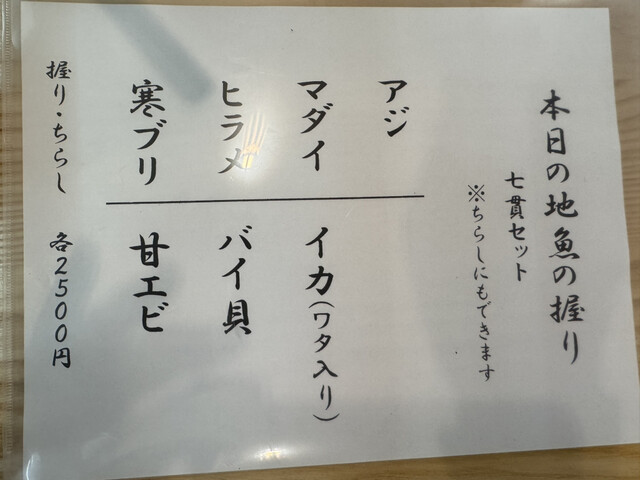 本日の地魚の握り
七貫セット
※ちらしにもできます
アジ
マダイ
ヒラメ
寒ブリ
イカ(ワタ入り)
バイ貝
甘エビ
握り・ちらし 各2500円